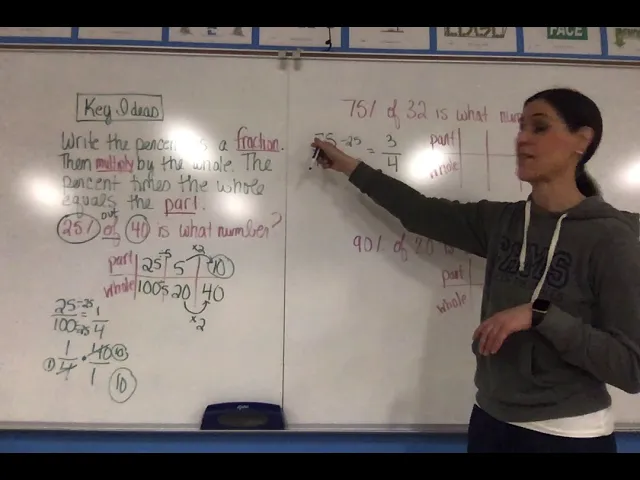 Key Ideas
Write the percent as a fraction.
Then multiply by the whole. The
percent times the whole
equals the part.
out
25% of 40 is what number?
part 25 ÷5 5 x2 10
whole 100 ÷5 20 x2 40
25 ÷25 = 1
100 ÷25 4
1 · 40 10
1 4 1 10
75% of 32 is what
75 ÷25 = 3
4
part
whole
90% of 20 is
part
whole
FACE